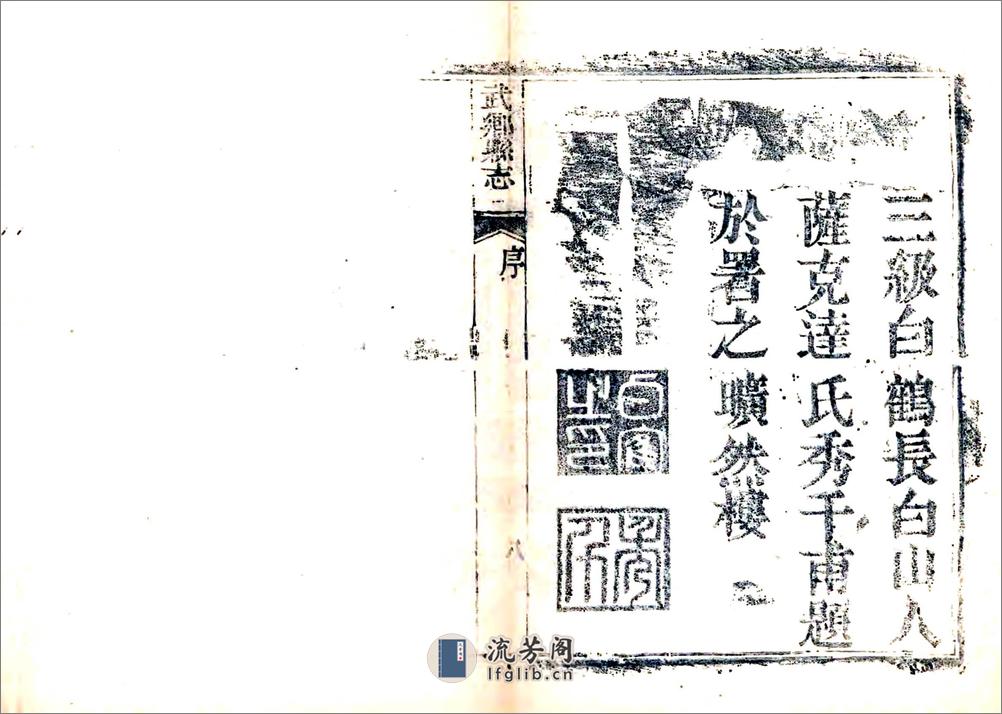 三級白鶴長白山人
薩克達氏秀千甫題
於署之曠然樓
武鄉縣志
序
八
流芳阁
lfglib.cn